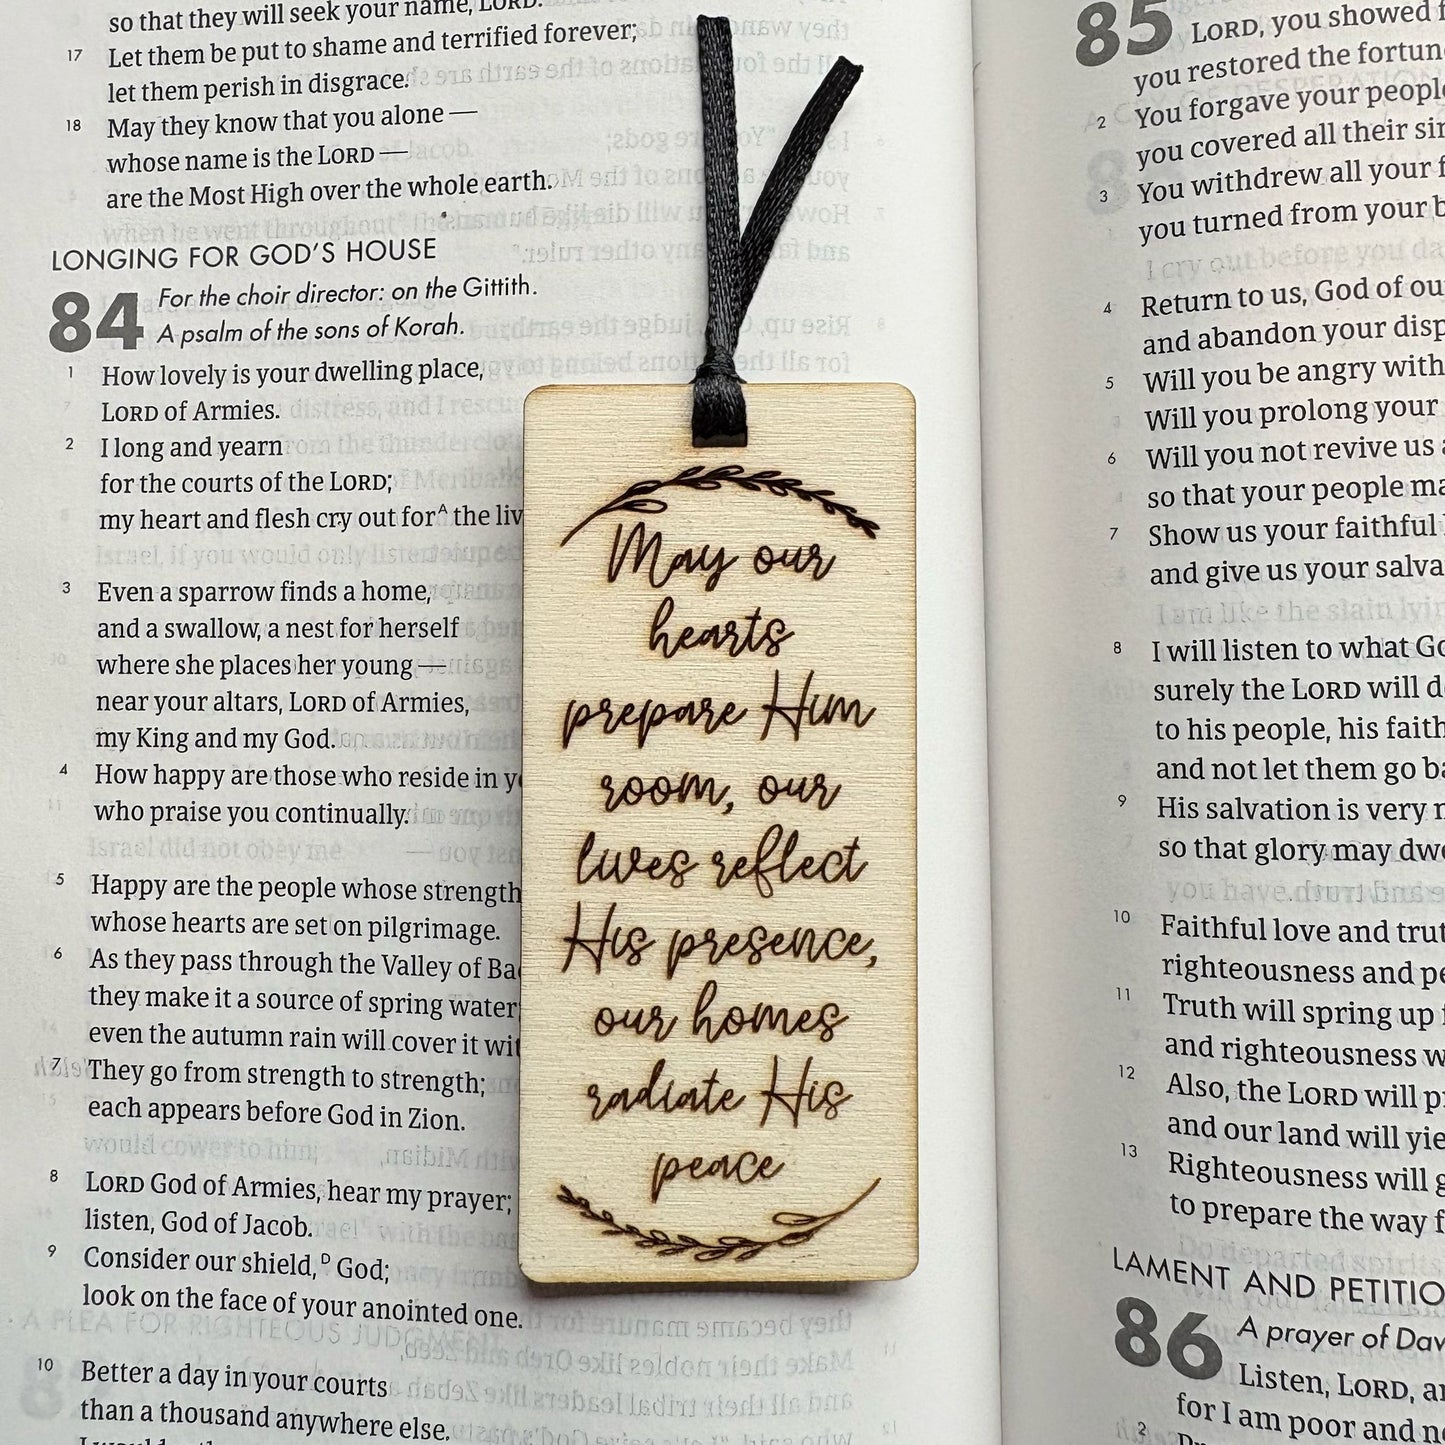 so that they will seek your name, LORD.
17 Let them be put to shame and terrified forever;
let them perish in disgrace.
18 May they know that you alone —
whose name is the LORD —
are the Most High over the whole earth.
LONGING FOR GOD'S HOUSE
84 For the choir director: on the Gittith.
A psalm of the sons of Korah.
1 How lovely is your dwelling place,
LORD of Armies.
2 I long and yearn
for the courts of the LORD;
my heart and flesh cry out for^A the liv
3 Even a sparrow finds a home,
and a swallow, a nest for herself
where she places her young —
near your altars, LORD of Armies,
my King and my God.
4 How happy are those who reside in yo
who praise you continually.
5 Happy are the people whose strength
whose hearts are set on pilgrimage.
6 As they pass through the Valley of Bac
they make it a source of spring water
even the autumn rain will cover it wit
7 They go from strength to strength;
each appears before God in Zion.
8 LORD God of Armies, hear my prayer;
listen, God of Jacob.
9 Consider our shield,^D God;
look on the face of your anointed one.
10 Better a day in your courts
than a thousand anywhere else.
May our
hearts
prepare Him
room, our
lives reflect
His presence,
our homes
radiate His
peace
85 LORD, you showed f
you restored the fortun
2 You forgave your people
you covered all their sin
3 You withdrew all your f
you turned from your b
4 Return to us, God of ou
and abandon your disp
5 Will you be angry with
Will you prolong your
6 Will you not revive us a
so that your people ma
7 Show us your faithful l
and give us your salva
8 I will listen to what Go
surely the LORD will de
to his people, his faith
and not let them go ba
9 His salvation is very n
so that glory may dwe
10 Faithful love and trut
righteousness and pe
11 Truth will spring up f
and righteousness w
12 Also, the LORD will pr
and our land will yie
13 Righteousness will g
to prepare the way f
LAMENT AND PETITIO
86 A prayer of Dav
Listen, LORD, an
for I am poor and n
2